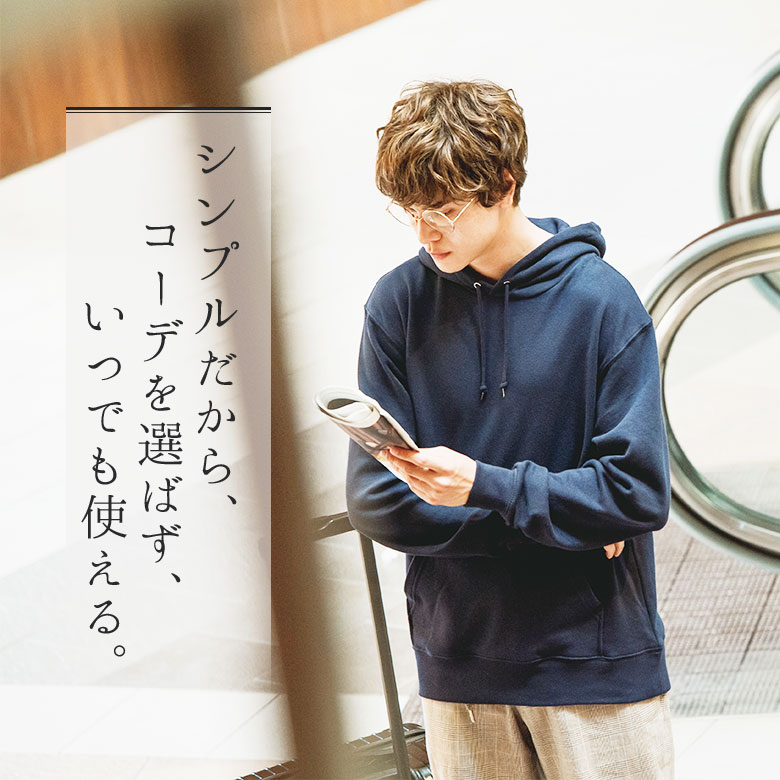 シンプルだから、
コーデを選ばず、
いつでも使える。